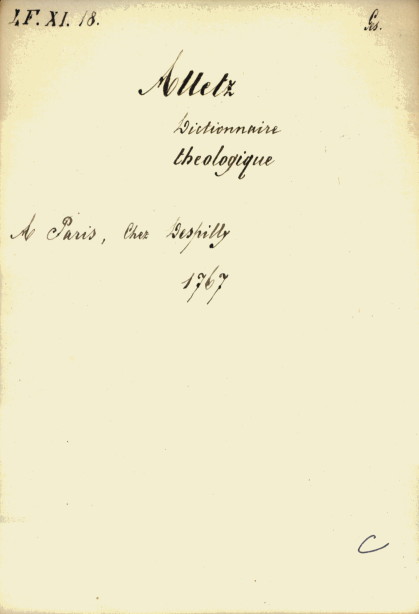 I.F. XI. 18.
Alletz
Dictionnaire
theologique
A Paris, Chez Despilly
1767
C